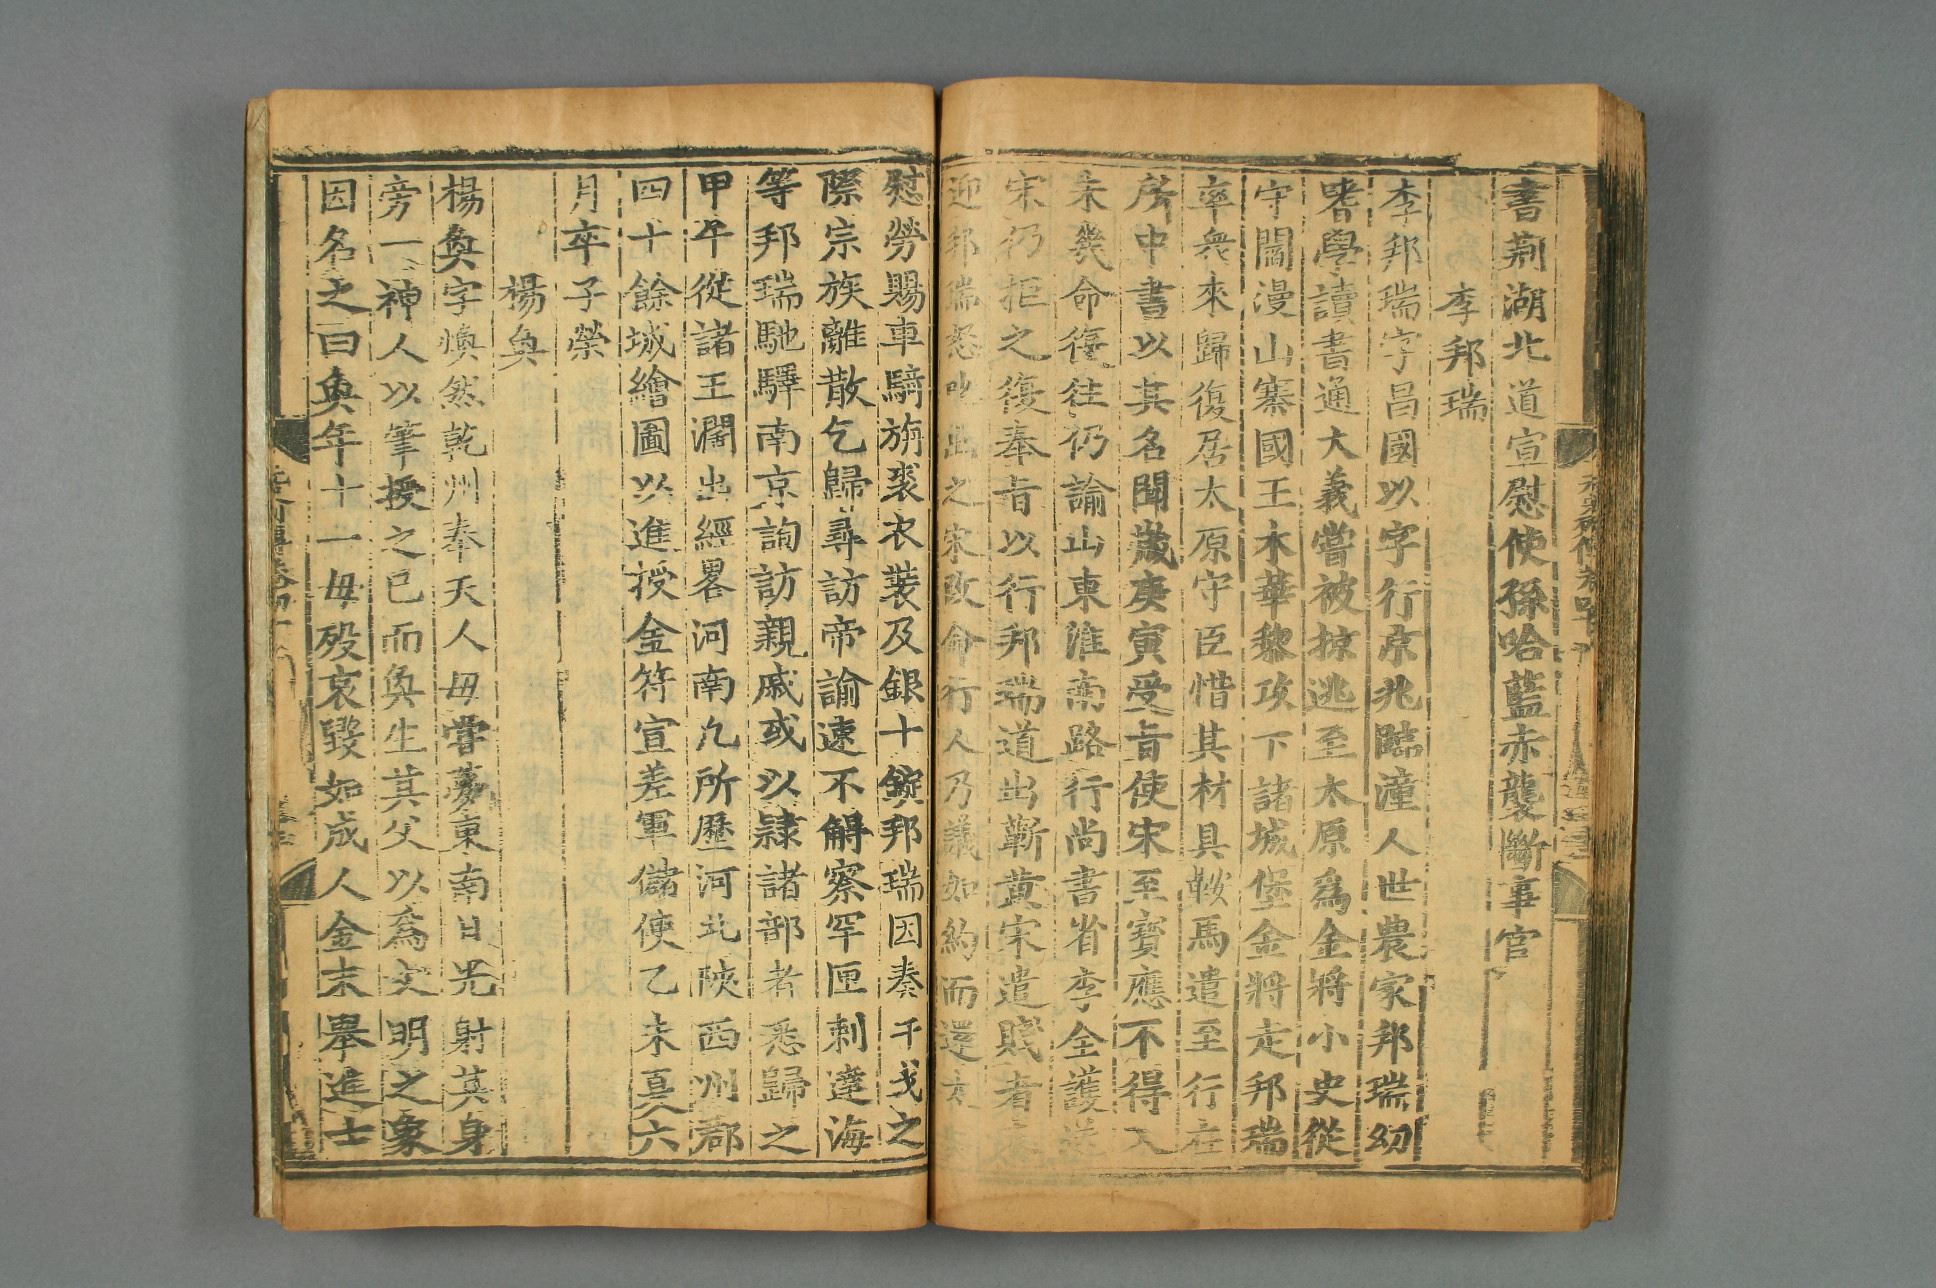 書荊湖北道宣慰使孫哈藍赤襲斷事官
李邦瑞
李邦瑞字昌國以字行京兆臨潼人世農家邦瑞幼
嗜學讀書通大義嘗被掠逃至太原爲金將小史從
守閻漫山寨國王木華黎攻下諸城堡金將走邦瑞
率衆來歸復居太原守臣惜其材具鞍馬遣至行在
所中書以其名聞歲庚寅受旨使宋至寶應不得入
未幾命復往仍諭山東淮南路行尚書省李全護送
宋仍拒之復奉旨以行邦瑞道出蘄黃宋遣賤者
迎邦瑞怒叱出之宋改命行人乃議如約而還太
慰勞賜車騎旃裘衣裝及銀十錠邦瑞因奏干戈之
際宗族離散乞歸尋訪帝諭速不䚟察罕匣剌達海
等邦瑞馳驛南京詢訪親戚或以隷諸部者悉歸之
甲午從諸王濶出經畧河南凢所歷河北陝西州郡
四十餘城繪圖以進授金符宣差軍儲使乙未夏六
月卒子榮
楊奐
楊奐字煥然乾州奉天人母嘗夢東南日光射其身
旁一神人以筆授之已而奐生其父以爲文明之象
因名之曰奐年十一母殁哀毀如成人金末舉進士